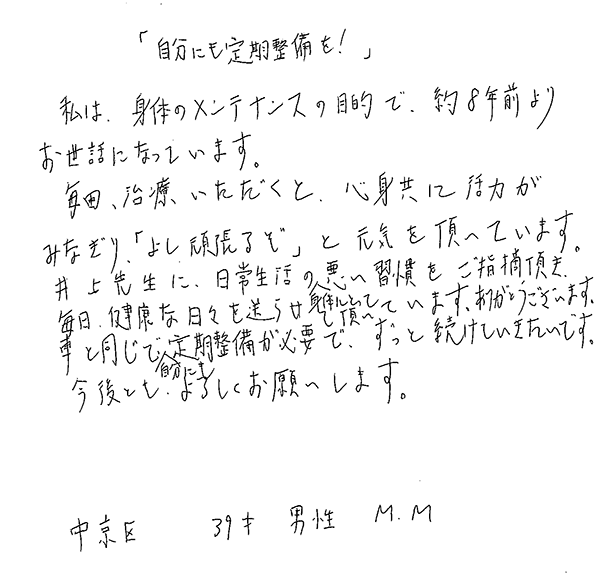 「自分にも定期整備を!」
私は、身体のメンテナンスの目的で、約8年前より
お世話になっています。
毎回、治療、いただくと、心身共に活力が
みなぎり、「よし頑張るぞ」と元気を頂いています。
井上先生に、日常生活の悪い習慣をご指摘頂き、
毎日、健康な日々を送らせて頂いています、ありがとうございます。
車と同じで、自分にも定期整備が必要で、ずっと続けていきたいです。
今後とも、よろしくお願いします。
中京区 39才 男性 M.M